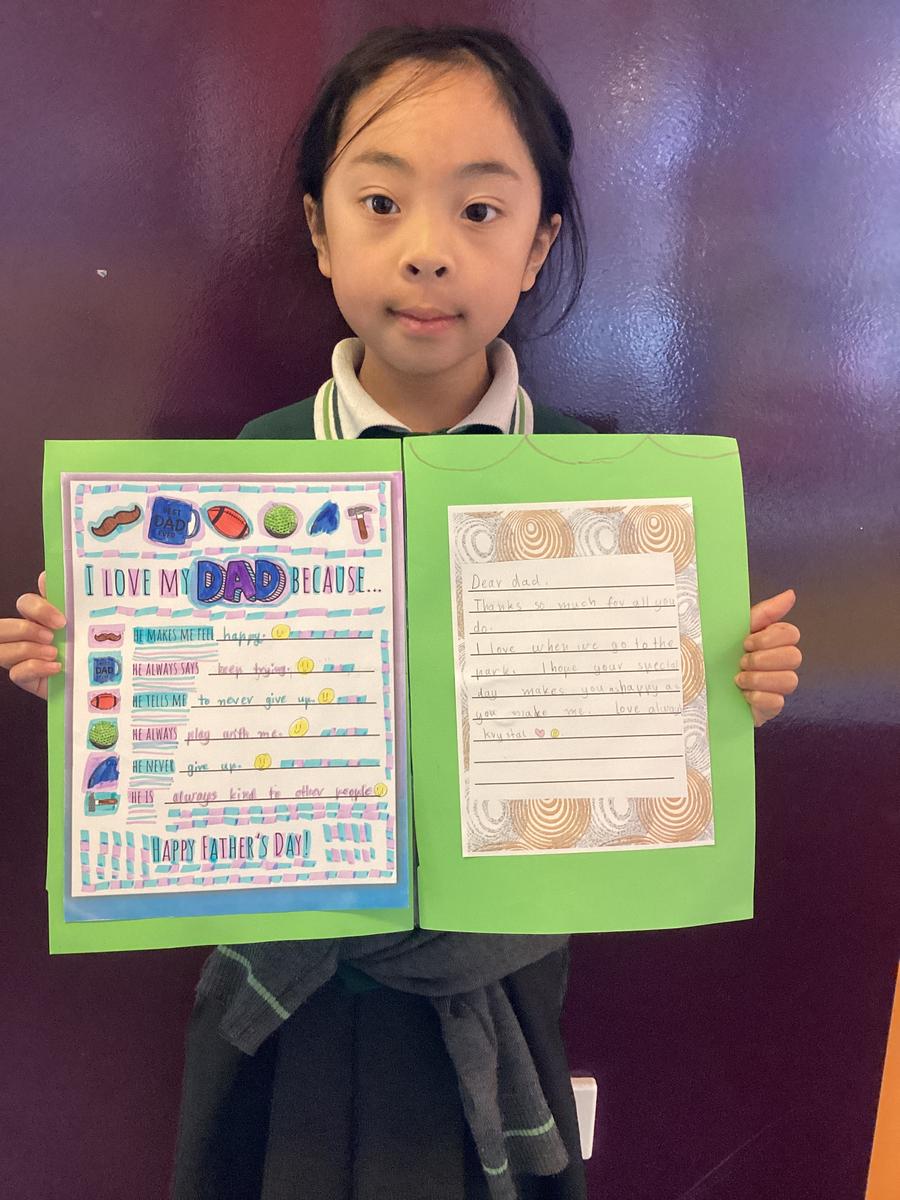 BEST DAD EVER
I LOVE MY DAD BECAUSE...
HE MAKES ME FEEL happy.
HE ALWAYS SAYS keep trying.
HE TELLS ME to never give up.
HE ALWAYS play with me.
HE NEVER give up.
HE IS always kind to other people
HAPPY FATHER'S DAY!
Dear dad.
Thanks so much for all you
do.
I love when we go to the
park. I hope your special
day makes you as happy as
you make me. love always
krystal